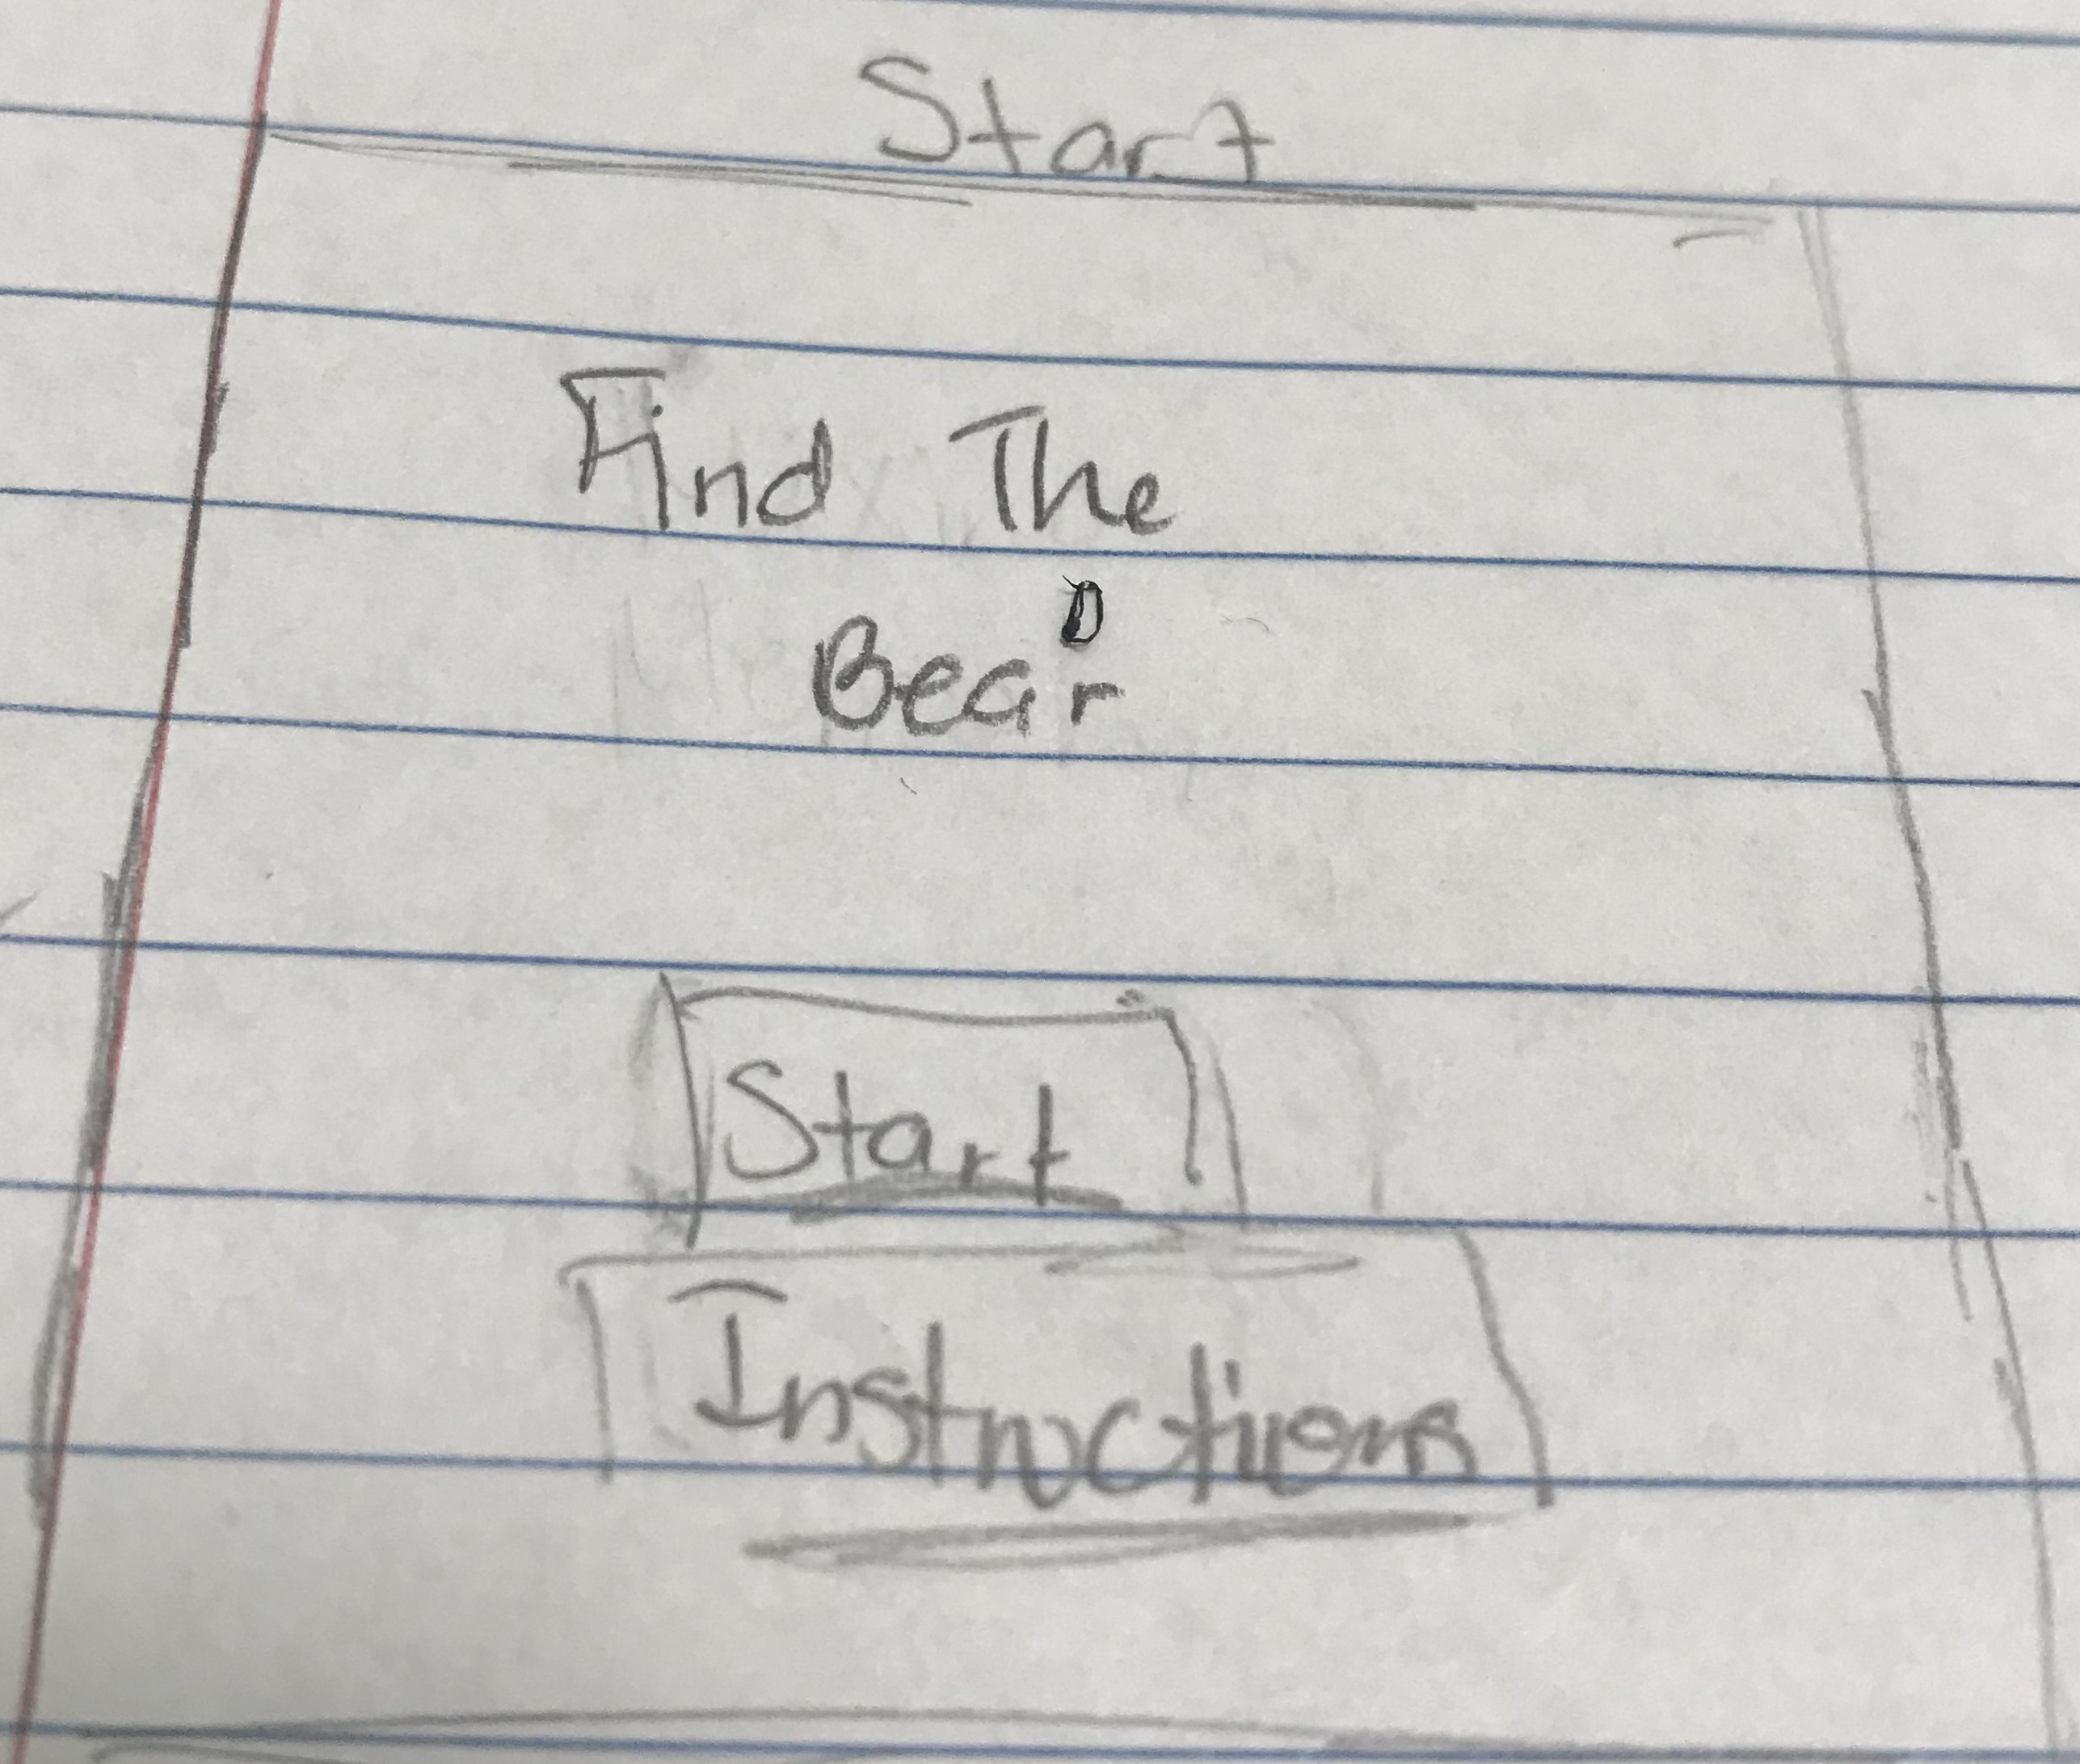 Start
Find The
Bear
Start
Instructions